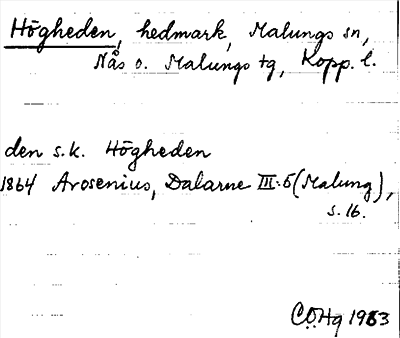 Högheden, hedmark, Malungs sn,
Nås o. Malungs tg, Kopp. l.
den s.k. Högheden
1864 Arosenius, Dalarne III:5 (Malung),
s. 16.
CÖHg 1963